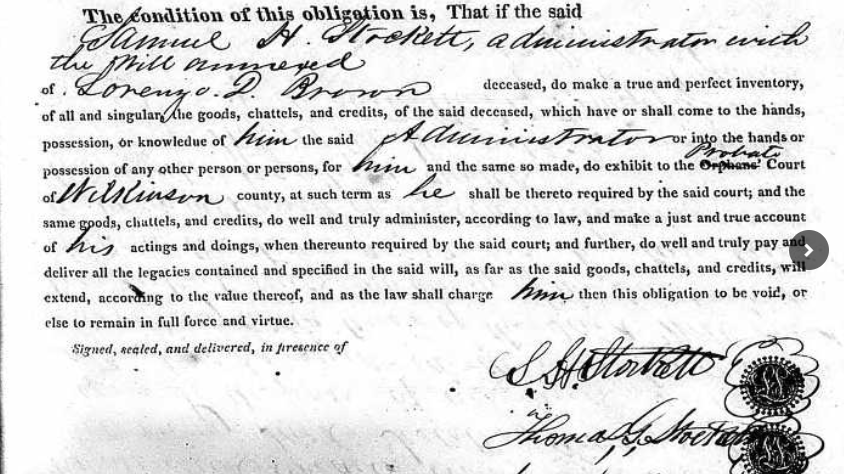 The condition of this obligation is, That if the said
Samuel H. Stockett, administrator with
the Will annexed
of Lorenzo D. Brown deceased, do make a true and perfect inventory,
of all and singular, the goods, chattels, and credits, of the said deceased, which have or shall come to the hands,
possession, or knowledue of him the said Administrator or into the hands or
possession of any other person or persons, for him and the same so made, do exhibit to the Orphans' Probate Court
of Wilkinson county, at such term as he shall be thereto required by the said court; and the
same goods, chattels, and credits, do well and truly administer, according to law, and make a just and true account
of his actings and doings, when thereunto required by the said court; and further, do well and truly pay and
deliver all the legacies contained and specified in the said will, as far as the said goods, chattels, and credits, will
extend, according to the value thereof, and as the law shall charge him then this obligation to be void, or
else to remain in full force and virtue.
Signed, sealed, and delivered, in presence of
S. H. Stockett
Thomas G. Stockett